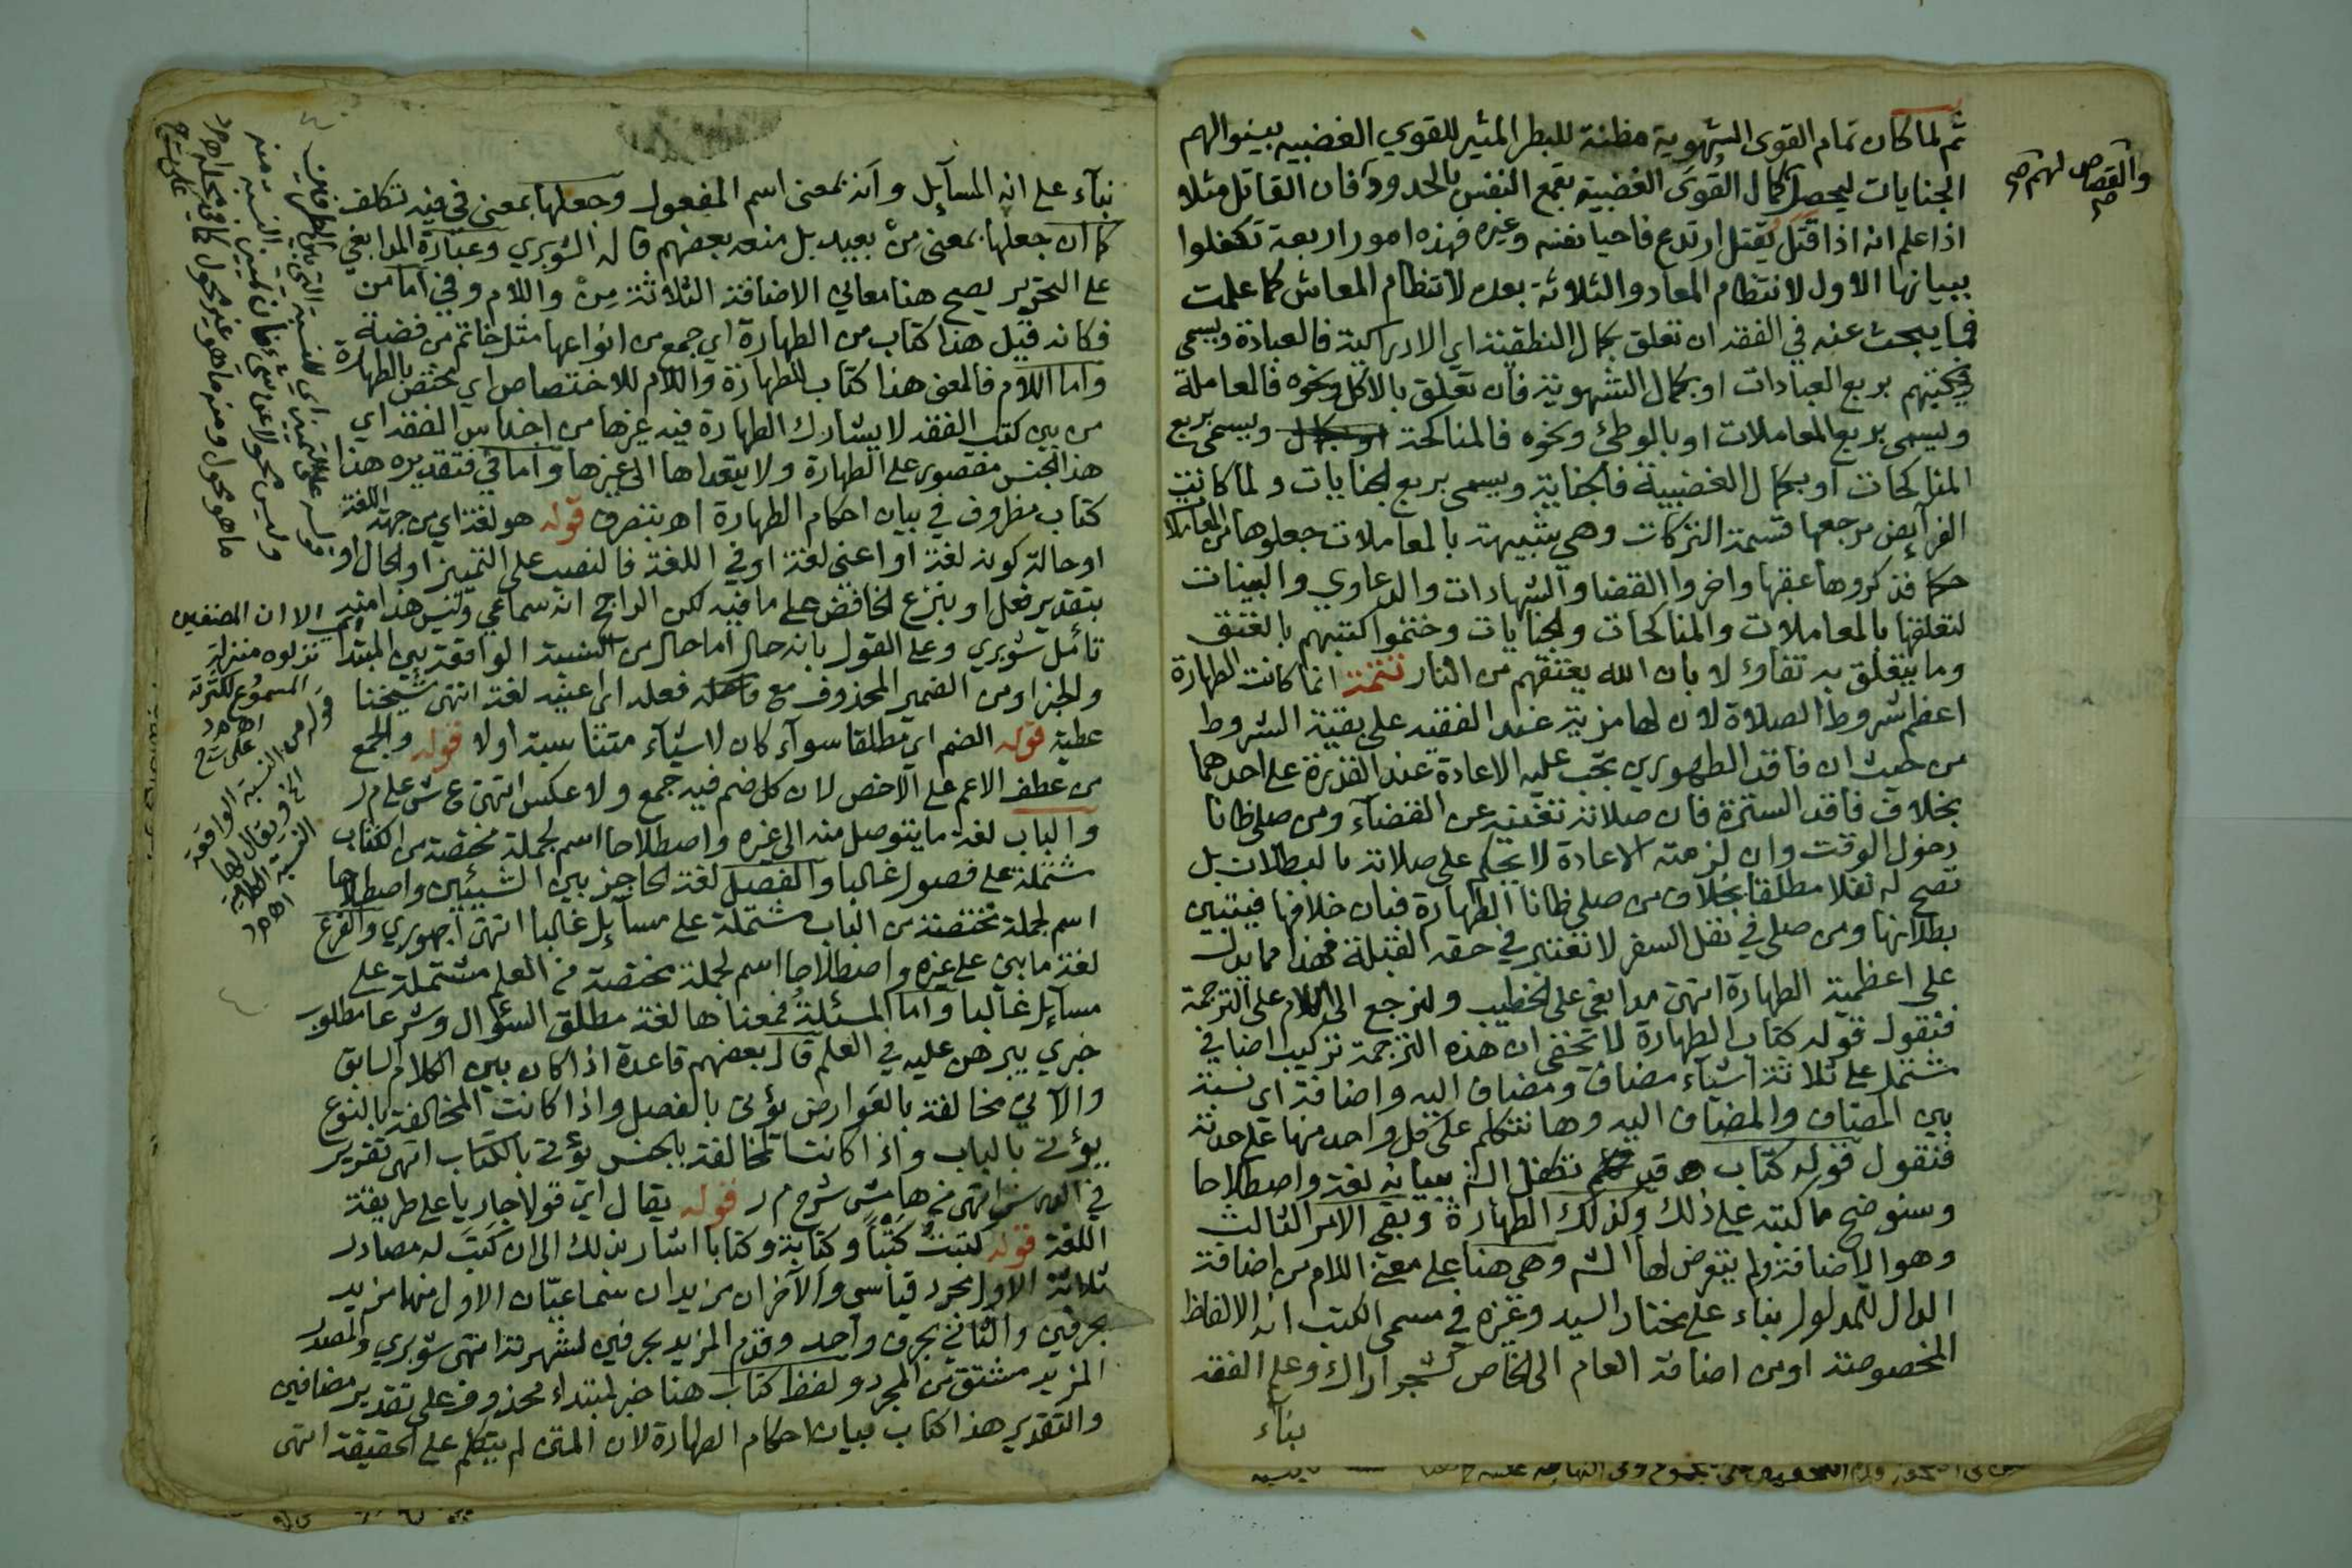 ثم لما كان تمام القوى الشهوية مظنة للبطر المثير للقوي الغضبيه بينوا لهم
والقصاص لهم صح
الجنايات ليحصل كمال القوى الغضبية بقمع النفس بالحدود فان القاتل مثلا
اذا علم انه اذا قتل يقتل ارتدع فاحيا نفسه وغيره فهذه امور اربعة تكفلوا
ببيانها الاول لانتظام المعاد والثلاثة بعده لانتظام المعاش كما علمت
فما يبحث عنه في الفقه ان تعلق بكمال النطقية اي الادراكية فالعبادة ويسمى
بربع العبادات او بكمال الشهوية فان تعلق بالاكل ونحوه فالمعاملة
ويسمى بربع المعاملات او بالوطئ ونحوه فالمناكحة ويسمى بربع
المناكحات او بكمال الغضبية فالجناية ويسمى بربع الجنايات ولما كانت
الفرآيض مرجعها قسمة التركات وهي شبيهة بالمعاملات جعلوها من المعاملات
حكما فذكروها عقبها واخروا القضا والشهادات والدعاوي والبينات
لتعلقها بالمعاملات والمناكحات والجنايات وختموا كتبهم بالعتق
وما يتعلق به تفاؤلا بان الله يعتقهم من النار تتمة انما كانت الطهارة
اعظم شروط الصلاة لان لها مزية عند الفقيه على بقية الشروط
من حيث ان فاقد الطهورين تجب عليه الاعادة عند القدرة على احدهما
بخلاف فاقد السترة فان صلاته تغنيه عن القضآء ومن صلى ظانا
دخول الوقت وان لزمته الاعادة لا يحكم على صلاته بالبطلان بل
تصح له نفلا مطلقا بخلاف من صلى ظانا الطهارة فبان خلافها فيتبين
بطلانها ومن صلى في نفل السفر لا تعتبر في حقه القبلة فهذا مما يدل
على اعظمية الطهارة انتهى مدابغي على الخطيب ولنرجع الى الكلام على الترجمة
فنقول قوله كتاب الطهارة لا يخفى ان هذه الترجمة تركيب اضافي
مشتمل على ثلاثة اشيآء مضاف ومضاف اليه واضافة اي نسبة
بين المضاف والمضاف اليه وها نتكلم على كل واحد منها على حدته
فنقول قوله كتاب قد تكفل الش ببيانه لغة واصطلاحا
وسنوضح ما كتبه على ذلك وكذلك الطهارة وبقى الامر الثالث
وهو الاضافة ولم يتعرض لها الش وهي هنا على معنى اللام من اضافة
الدال للمدلول بناء على مختار السيد وغيره في مسمى الكتب انه الالفاظ
المخصوصة او من اضافة العام الى الخاص كشجر اراك وعلم الفقه
بناء
بنآء على انه المسآيل وانه بمعنى اسم المفعول وجعلها بمعنى في فيه تكلف
كما ان جعلها بمعنى من بعيد بل منعه بعضهم قاله الشوبري وعبارة المدابغي
على التحرير يصح هنا معاني الاضافة الثلاثة من واللام وفي اما من
فكانه قيل هذا كتاب من الطهارة اي جمع من انواعها مثل خاتم من فضة
واما اللام فالمعنى هذا كتاب للطهارة واللام للاختصاص اي مختص بالطهارة
من بين كتب الفقه لا يشارك الطهارة فيه غيرها من اجناس الفقه اي
هذا الجنس مقصور على الطهارة ولا يتعداها الى غيرها واما في فتقديره هذا
كتاب مظروف في بيان احكام الطهارة اهـ بتصرف قوله هو لغة اي من جهة اللغة
او حالة كونه لغة او اعنى لغة او في اللغة فالنصب على التمييز او الحال او
بتقدير فعل او بنزع الخافض على ما فيه لكن الراجح انه سماعي وليس هذا منه
تأمل شوبري وعلى القول بانه حال اما حال من النسبة الواقعة بين المبتدا
والخبر او من الضمير المحذوف مع فعله اي اعنيه لغة انتهى شيخنا
عطية قوله الضم اي مطلقا سوآء كان لاشيآء متناسبة اولا قوله والجمع
من عطف الاعم على الاخص لان كل ضم فيه جمع ولا عكس انتهى ع ش على م ر
والباب لغة ما يتوصل منه الى غيره واصطلاحا اسم لجملة مختصة من الكتاب
مشتملة على فصول غالبا والفصل لغة الحاجز بين الشيئين واصطلاحا
اسم لجملة مختصة من الباب مشتملة على مسآيل غالبا انتهى اجهوري والفرع
لغة ما بني على غيره واصطلاحا اسم لجملة مختصة من العلم مشتملة على
مسآيل غالبا واما المسئلة فمعناها لغة مطلق السؤال وشرعا مطلوب
خبري يبرهن عليه في العلم قال بعضهم قاعدة اذا كان بين الكلام السابق
والآتي مخالفة بالعوارض يؤتى بالفصل واذا كانت المخالفة بالنوع
يؤتى بالباب واذا كانت المخالفة بالجنس يؤتى بالكتاب انتهى تقرير
انتهى من هامش شرح م ر قوله يقال اي قولا جاريا على طريقة
اللغة قوله كتبت كتبا وكتابة وكتابا اشار بذلك الى ان كتب له مصادر
ثلاثة الاول مجرد قياسي والآخران مزيدان سماعيان الاول منهما مزيد
بحرفين والثاني بحرف واحد وقدم المزيد بحرفين لشهرته انتهى شوبري والمصدر
المزيد مشتق من المجرد ولفظ كتاب هنا خبر لمبتداء محذوف على تقدير مضافين
والتقدير هذا كتاب بيان احكام الطهارة لان المتن لم يتكلم على الحقيقة انتهى
الا ان المصنفين
نزلوه منزلة
المسموع لكثرته
قوله من النسبة الواقعة
الخ ويقال لها